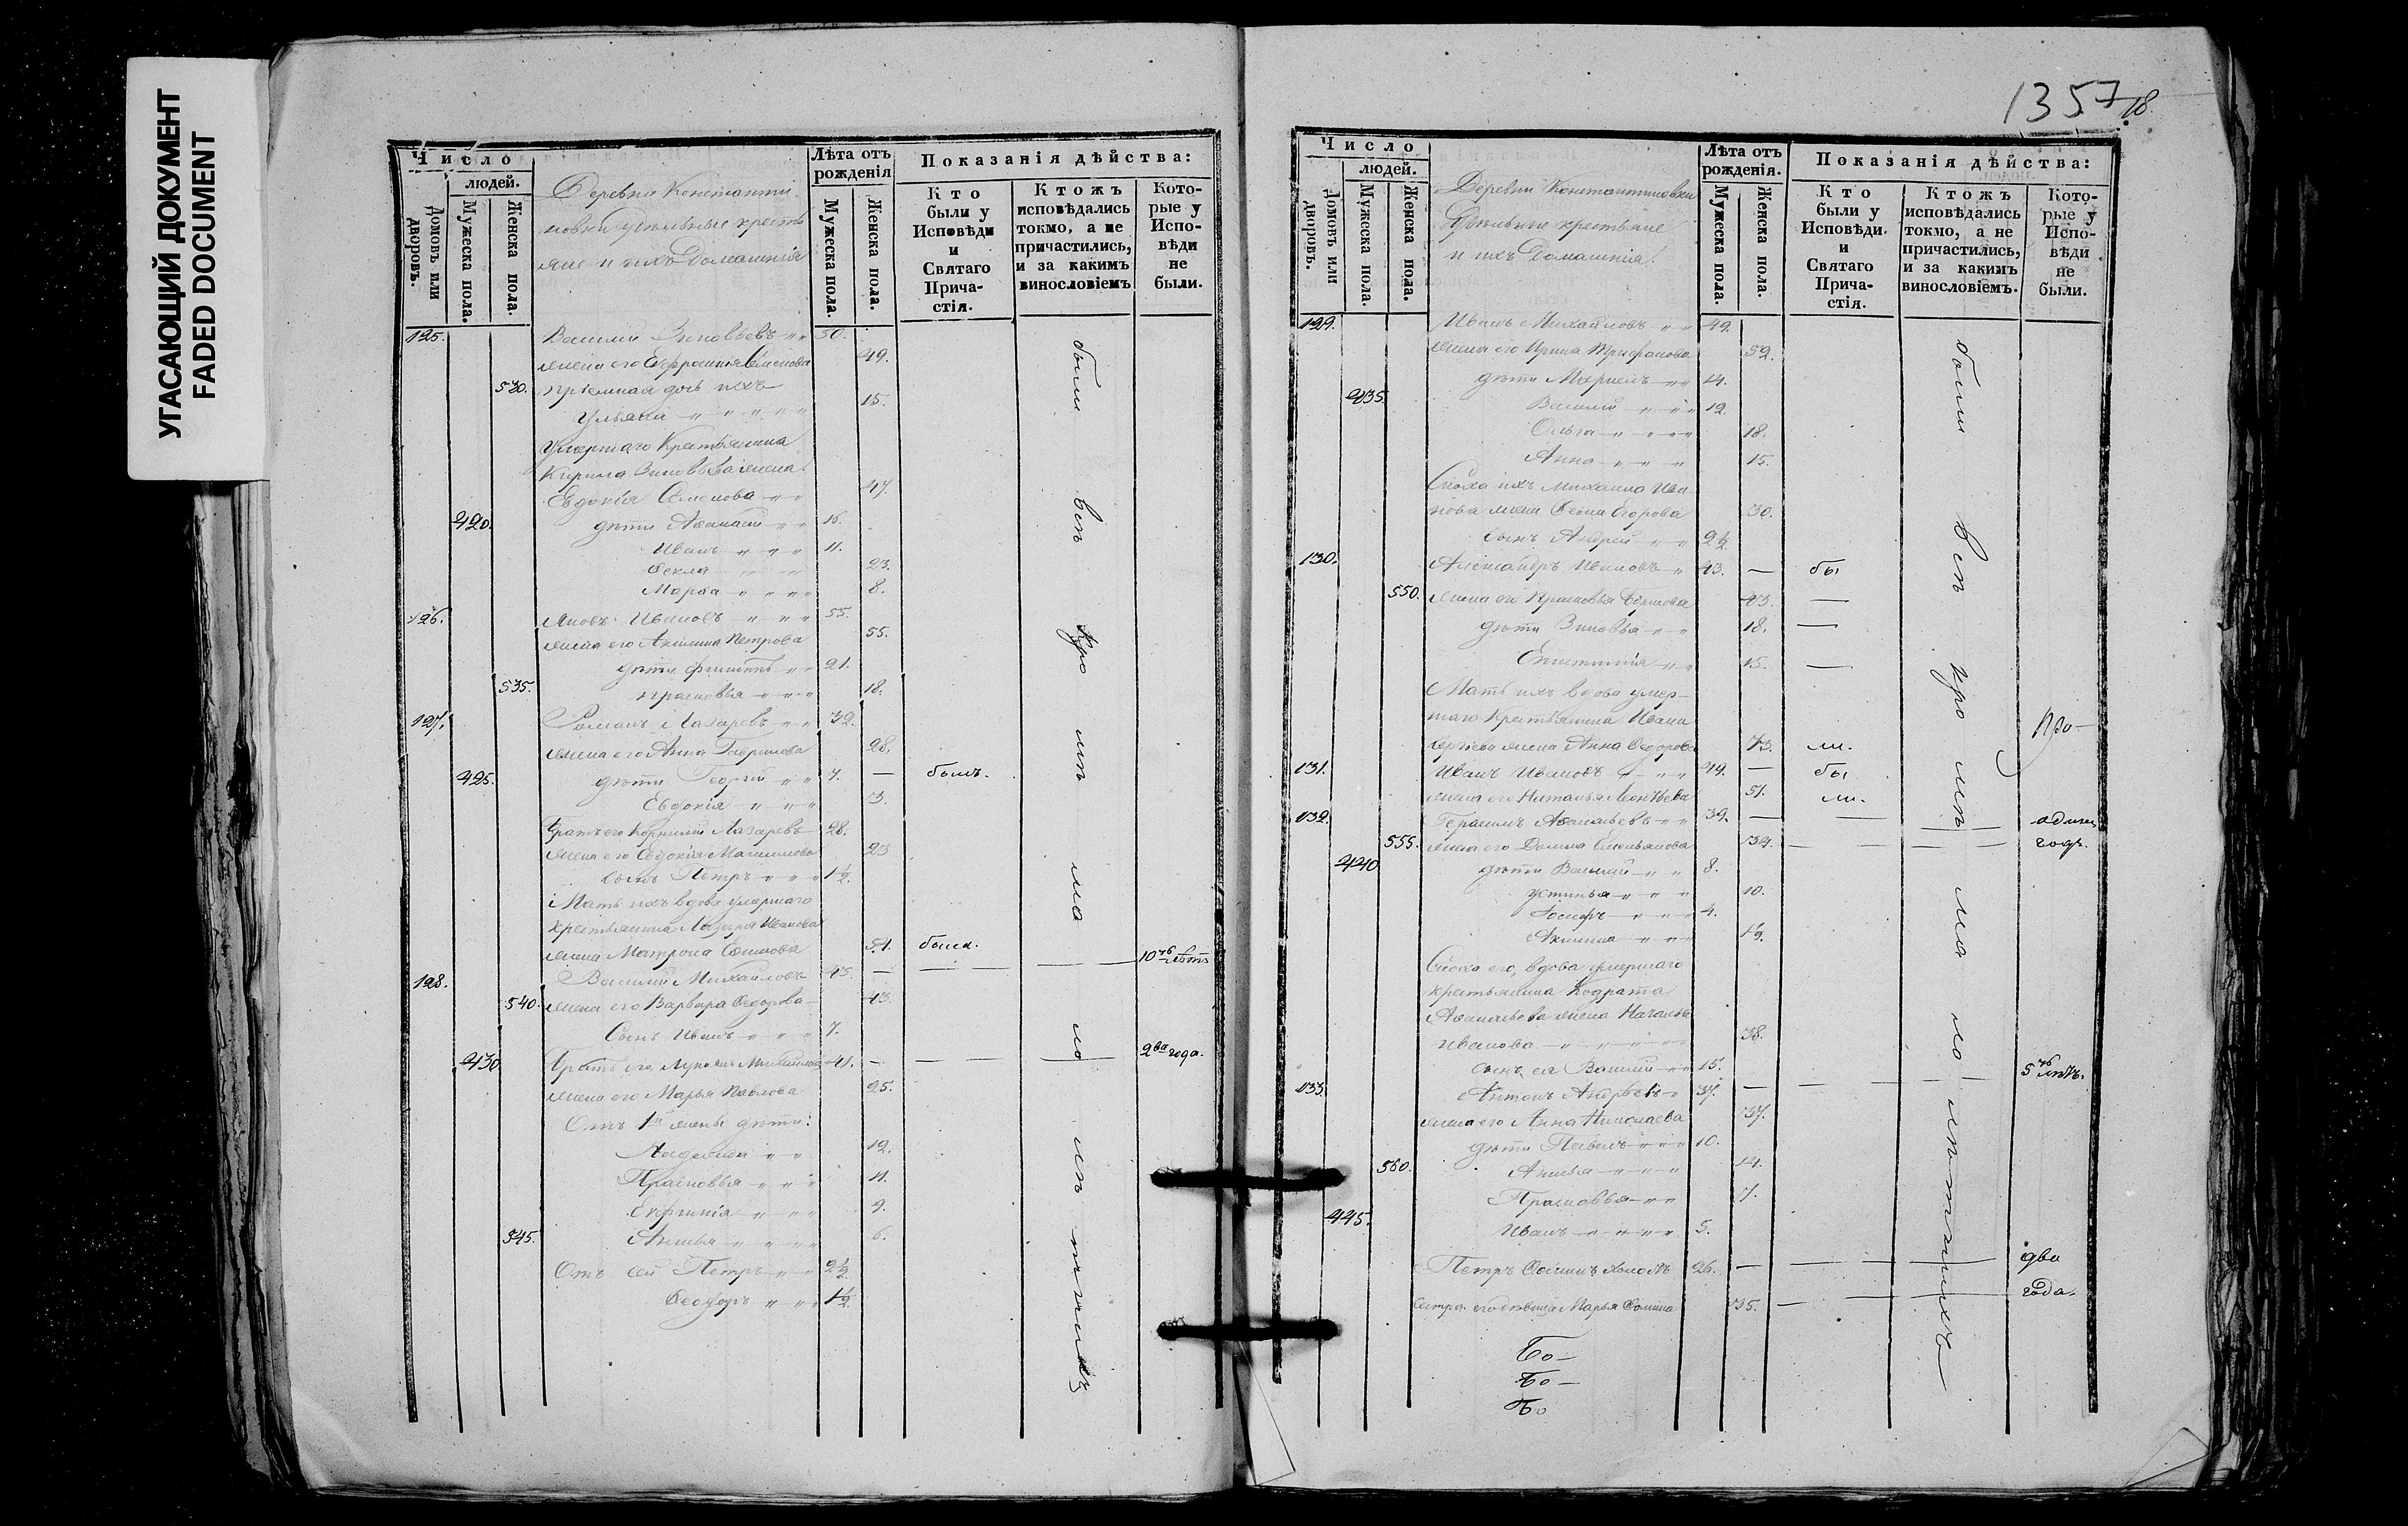 УГАСАЮЩИЙ ДОКУМЕНТ
FADED DOCUMENT
Число
людей.
Домовъ или дворовъ.
Мужеска пола.
Женска пола.
Деревни Константи
новки удѣльные кресть
яне и ихъ Домашнія
Лѣта отъ рожденія
Мужеска пола.
Женска пола.
Показанія дѣйства:
Кто были у Исповѣди и Святаго Прича-стія.
Ктожъ исповѣдались токмо, а не причастились, и за какимъ винословіемъ
Кото-рые у Испо-вѣди не были.
125. Василій Зиновьевъ 50.
жена его Евфросинія Семенова 49.
530. пріемная дочь ихъ
Ульяна 15.
Умершаго Крестьянина
Кирила Зиновьева жена
Евдокія Семенова 47.
420. дѣти Аѳанасій 16.
Иванъ 11.
Ѳекла 23.
Марѳа 8.
126. Яковъ Ивановъ 55.
жена его Акилина Петрова 55.
дѣти Филиппъ 21.
535. Прасковья 18.
127. Романъ Лазаревъ 32.
жена его Анна Гаврилова 28.
425. дѣти Георгій 7. — былъ.
Евдокія 3.
Братъ его Корнилій Лазаревъ 28.
жена его Евдокія 23
сынъ Петръ 1½.
Мать ихъ вдова умершаго
крестьянина Лазаря Иванова
жена Матрона 51. была. 10ть лѣтъ
128. Василій Михайловъ 43. —
540. жена его Варвара Ѳедорова 43.
Сынъ Иванъ 7.
430. Братъ его Михайловъ 41. — 2ва года.
жена его Марья Павлова 25.
Отъ 1й жены дѣти:
12.
Прасковья 11.
Евфимія 9.
545. 6.
Отъ сей Петръ 2½.
Ѳеодоръ 1½.
были всѣ кро мѣ ма ло лѣ тнихъ
1357
18.
Число
людей.
Домовъ или дворовъ.
Мужеска пола.
Женска пола.
Деревни Константиновки
Удѣльные крестьяне
и ихъ Домашнія.
Лѣта отъ рожденія.
Мужеска пола.
Женска пола.
Показанія дѣйства:
Кто были у Исповѣди. и Святаго Прича-стія.
Ктожъ исповѣдались токмо, а не причастились, и за какимъ винословіемъ.
Кото-рые у Испо-вѣди не были.
129. Иванъ Михайловъ 49.
жена его Ирина Трифанова 52.
дѣти 14.
435. Василій 12.
Ольга 18.
Анна 15.
Сноха ихъ Михаила Ива
нова жена Ѳекла Егорова 30.
сынъ Андрей 2½
130. Александръ Ивановъ 43. — бы
550. жена его Прасковья 43. —
дѣти Зиновья 18. —
15. —
Мать ихъ вдова умер-
шаго Крестьянина Ивана
Сергѣева жена Анна Ѳедорова 73. ли. Про-
131. Иванъ Ивановъ 49. — бы
жена его Наталья Леонтьева 51. ли.
132. Герасимъ Аѳанасьевъ 39. — одинъ
555. жена его Домна Емельянова 39. — годъ.
440 дѣти Василій 8.
Устинья 10.
Іосифъ 4.
Акилина 1½.
Сноха его, вдова умершаго
крестьянина Кодрата
Аѳанасьева жена Наталья
Иванова 38.
сынъ ея Василій 15.
133. Антонъ Андреевъ 37. — 5ть лѣтъ.
жена его Анна Николаева 37.
дѣти Павелъ 10.
560. 14.
Прасковья 7.
445. Иванъ 5.
Петръ 26. — два
Сестра его дѣвица Марья 35. — года.
были всѣ кро мѣ ма ло лѣтнихъ
Бо-
Бо-
Бо